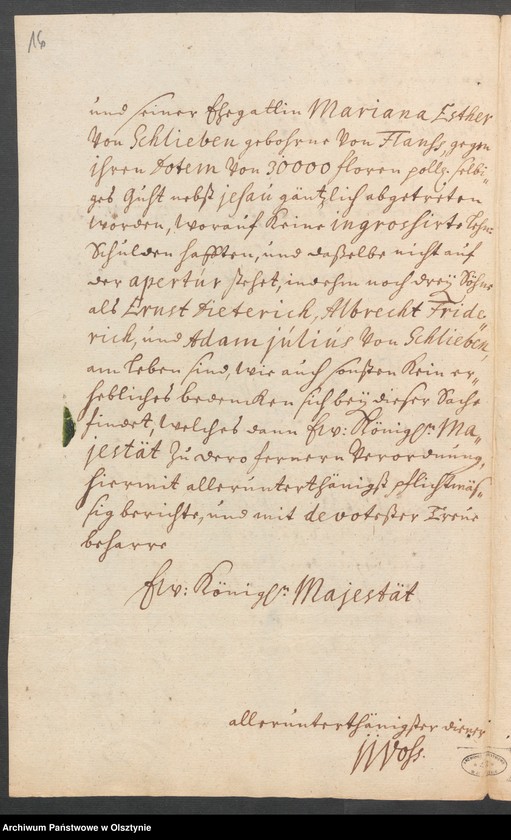 16
und seiner Ehegattin Mariana Esther
Von Schlieben gebohrne Von Flanss, gegen
ihren Dotem Von 30000 floren polln. selbi„
ges Guht nebst jesau gäntzlich abgetreten
worden, worauf Keine ingrossirte Lehn=
Schulden hafften, und daßelbe nicht auf
der apertúr stehet, indehm noch dreÿ Söhne
als Ernst Dieterich, Albrecht Fride„
rich, und Adam július Von Schlieben,
am Leben sind, wie auch sonsten Kein er„
hebliches bedencken sich beÿ dieser Sache
findet, welches dann Ew: Königln. Ma„
jestät Zu dero fernern Verordnung,
hiermit allerunterthänigst pflichtmäs„
sig berichte, und mit devotester Treue
beharre
Ew: Königln. Majestät
allerunterthänigster diener
Voss.
Archiwum Państwowe w Olsztynie